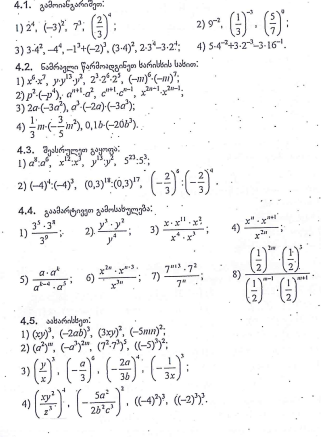 4.1. გამოიანგარიშეთ:
1) 2⁴, (−3)², 7³, (2/3)⁴;
2) 9⁻², (1/3)⁻³, (5/7)⁰;
3) 3·4², −4⁴, −1³+(−2)³, (3·4)², 2·3⁴−3·2⁴;
4) 5·4⁻²+3·2⁻³−3·16⁻¹.
4.2. ნამრავლი წარმოადგინეთ ხარისხის სახით:
1) x⁶·x⁷, y·y¹³·y², 2³·2⁶·2⁵, (−m)⁶·(−m)⁷;
2) p³·(−p⁴), aⁿ⁺¹·a², cⁿ⁺¹·cⁿ⁻¹, x²ⁿ⁻¹·x²ⁿ⁻¹;
3) 2a·(−3a²), a³·(−2a)·(−3a³);
4) 1/3 m·(−3/5 m²), 0,1b·(−20b³).
4.3. შეასრულეთ გაყოფა:
1) a⁸:a⁶, x¹²:x³, y¹³:y², 5²³:5³;
2) (−4)⁴:(−4)³, (0,3)¹⁸:(0,3)¹⁷, (−2/3)⁶:(−2/3)⁴.
4.4. გაამარტივეთ გამოსახულება:
1) 3⁵·3⁸/3⁹;
2) y³·y⁹/y⁴;
3) x·x¹¹·x²/x⁴·x³;
4) xⁿ·xⁿ⁺¹/x²ⁿ;
5) a·aᵏ/aᵏ⁻⁴·a⁵;
6) x²ⁿ·xⁿ⁺³/x³ⁿ;
7) 7ⁿ⁺³·7²/7ⁿ;
8) (1/2)²ᵐ·(1/2)³/(1/2)ⁿ⁻¹·(1/2)ⁿ⁺¹.
4.5. აახარისხეთ:
1) (xy)³, (−2ab)³, (3xy)², (−5mn)²;
2) (a²)ᵐ, (−a³)²ᵐ, (7²·7³)⁵, ((−5)³)²;
3) (y/x)³, (−a/3)⁶, (−2a/3b)⁴, (−1/3x)³;
4) (xy²/z³)⁴, (−5a²/2b²c³)², ((−4)²)³, ((−2)³)³.